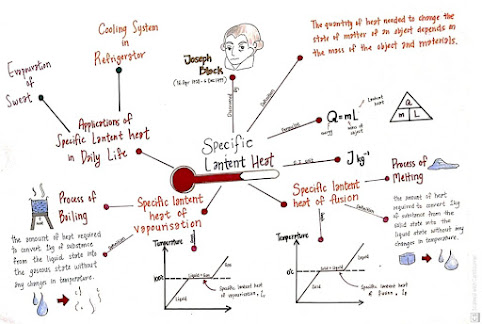 Cooling System
in
Refrigerator
Evaporation
of
Sweat
Applications of
Specific Lantent heat
in Daily Life
Joseph
Black
Discovered by
Definition
The quantity of heat needed to change the
state of matter of an object depends on
the mass of the object and materials.
Specific
Lantent Heat
Formula
Q = mL
Lantent heat
energy
mass of object
Q
m L
S.I unit
J kg⁻¹
Process of
Melting
Specific lantent
heat of fusion
Definition
the amount of heat
required to convert 1kg
of substance from the
solid state into the
liquid state without any
changes in temperature.
Process of
Boiling
Specific lantent
heat of
vapourisation
Definition
the amount of heat required
to convert 1kg of substance
from the liquid state into
the gaseous state without
any changes in temperature.
Temperature
Liquid + Gas
Liquid
Specific lantent heat
of vaporisation,
Time
Temperature
0°C
Liquid + Solid
Solid
Liquid
Specific lantent heat
of fusion,
Time